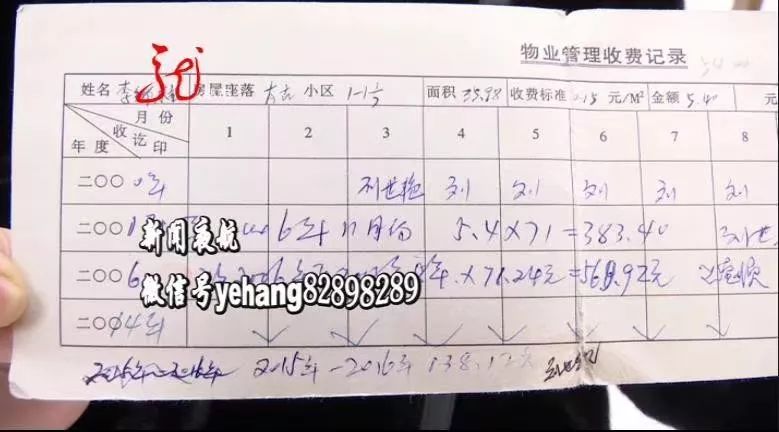 物业管理收费记录
姓名 李 房屋座落 小区 1-1号 面积 35.98 收费标准 0.15 元/M² 金额 5.40 元
月份
收讫印
年度
1 2 3 4 5 6 7 8
二〇〇0年 刘世艳 刘 刘 刘 刘 刘
二〇〇1 6年11月份 5.4×71=383.40 刘世
二〇〇6 年×71.24元=568.92元
二〇〇14年
2015年-2016年 138.12元
新闻夜航
微信号yehang82898289